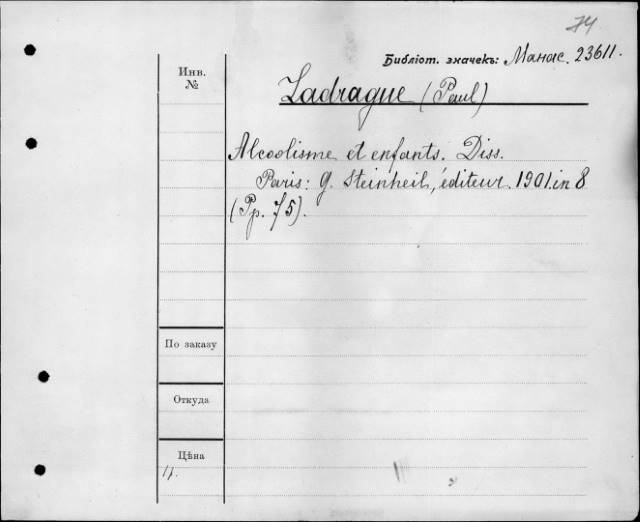 74
Библіот. значекъ: Манас. 23611.
Инв.
№
Ladrague (Paul)
Alcoolisme et enfants. Diss.
Paris: G. Steinheil, éditeur. 1901. in 8
(Pp. 75).
По заказу
Откуда
Цѣна